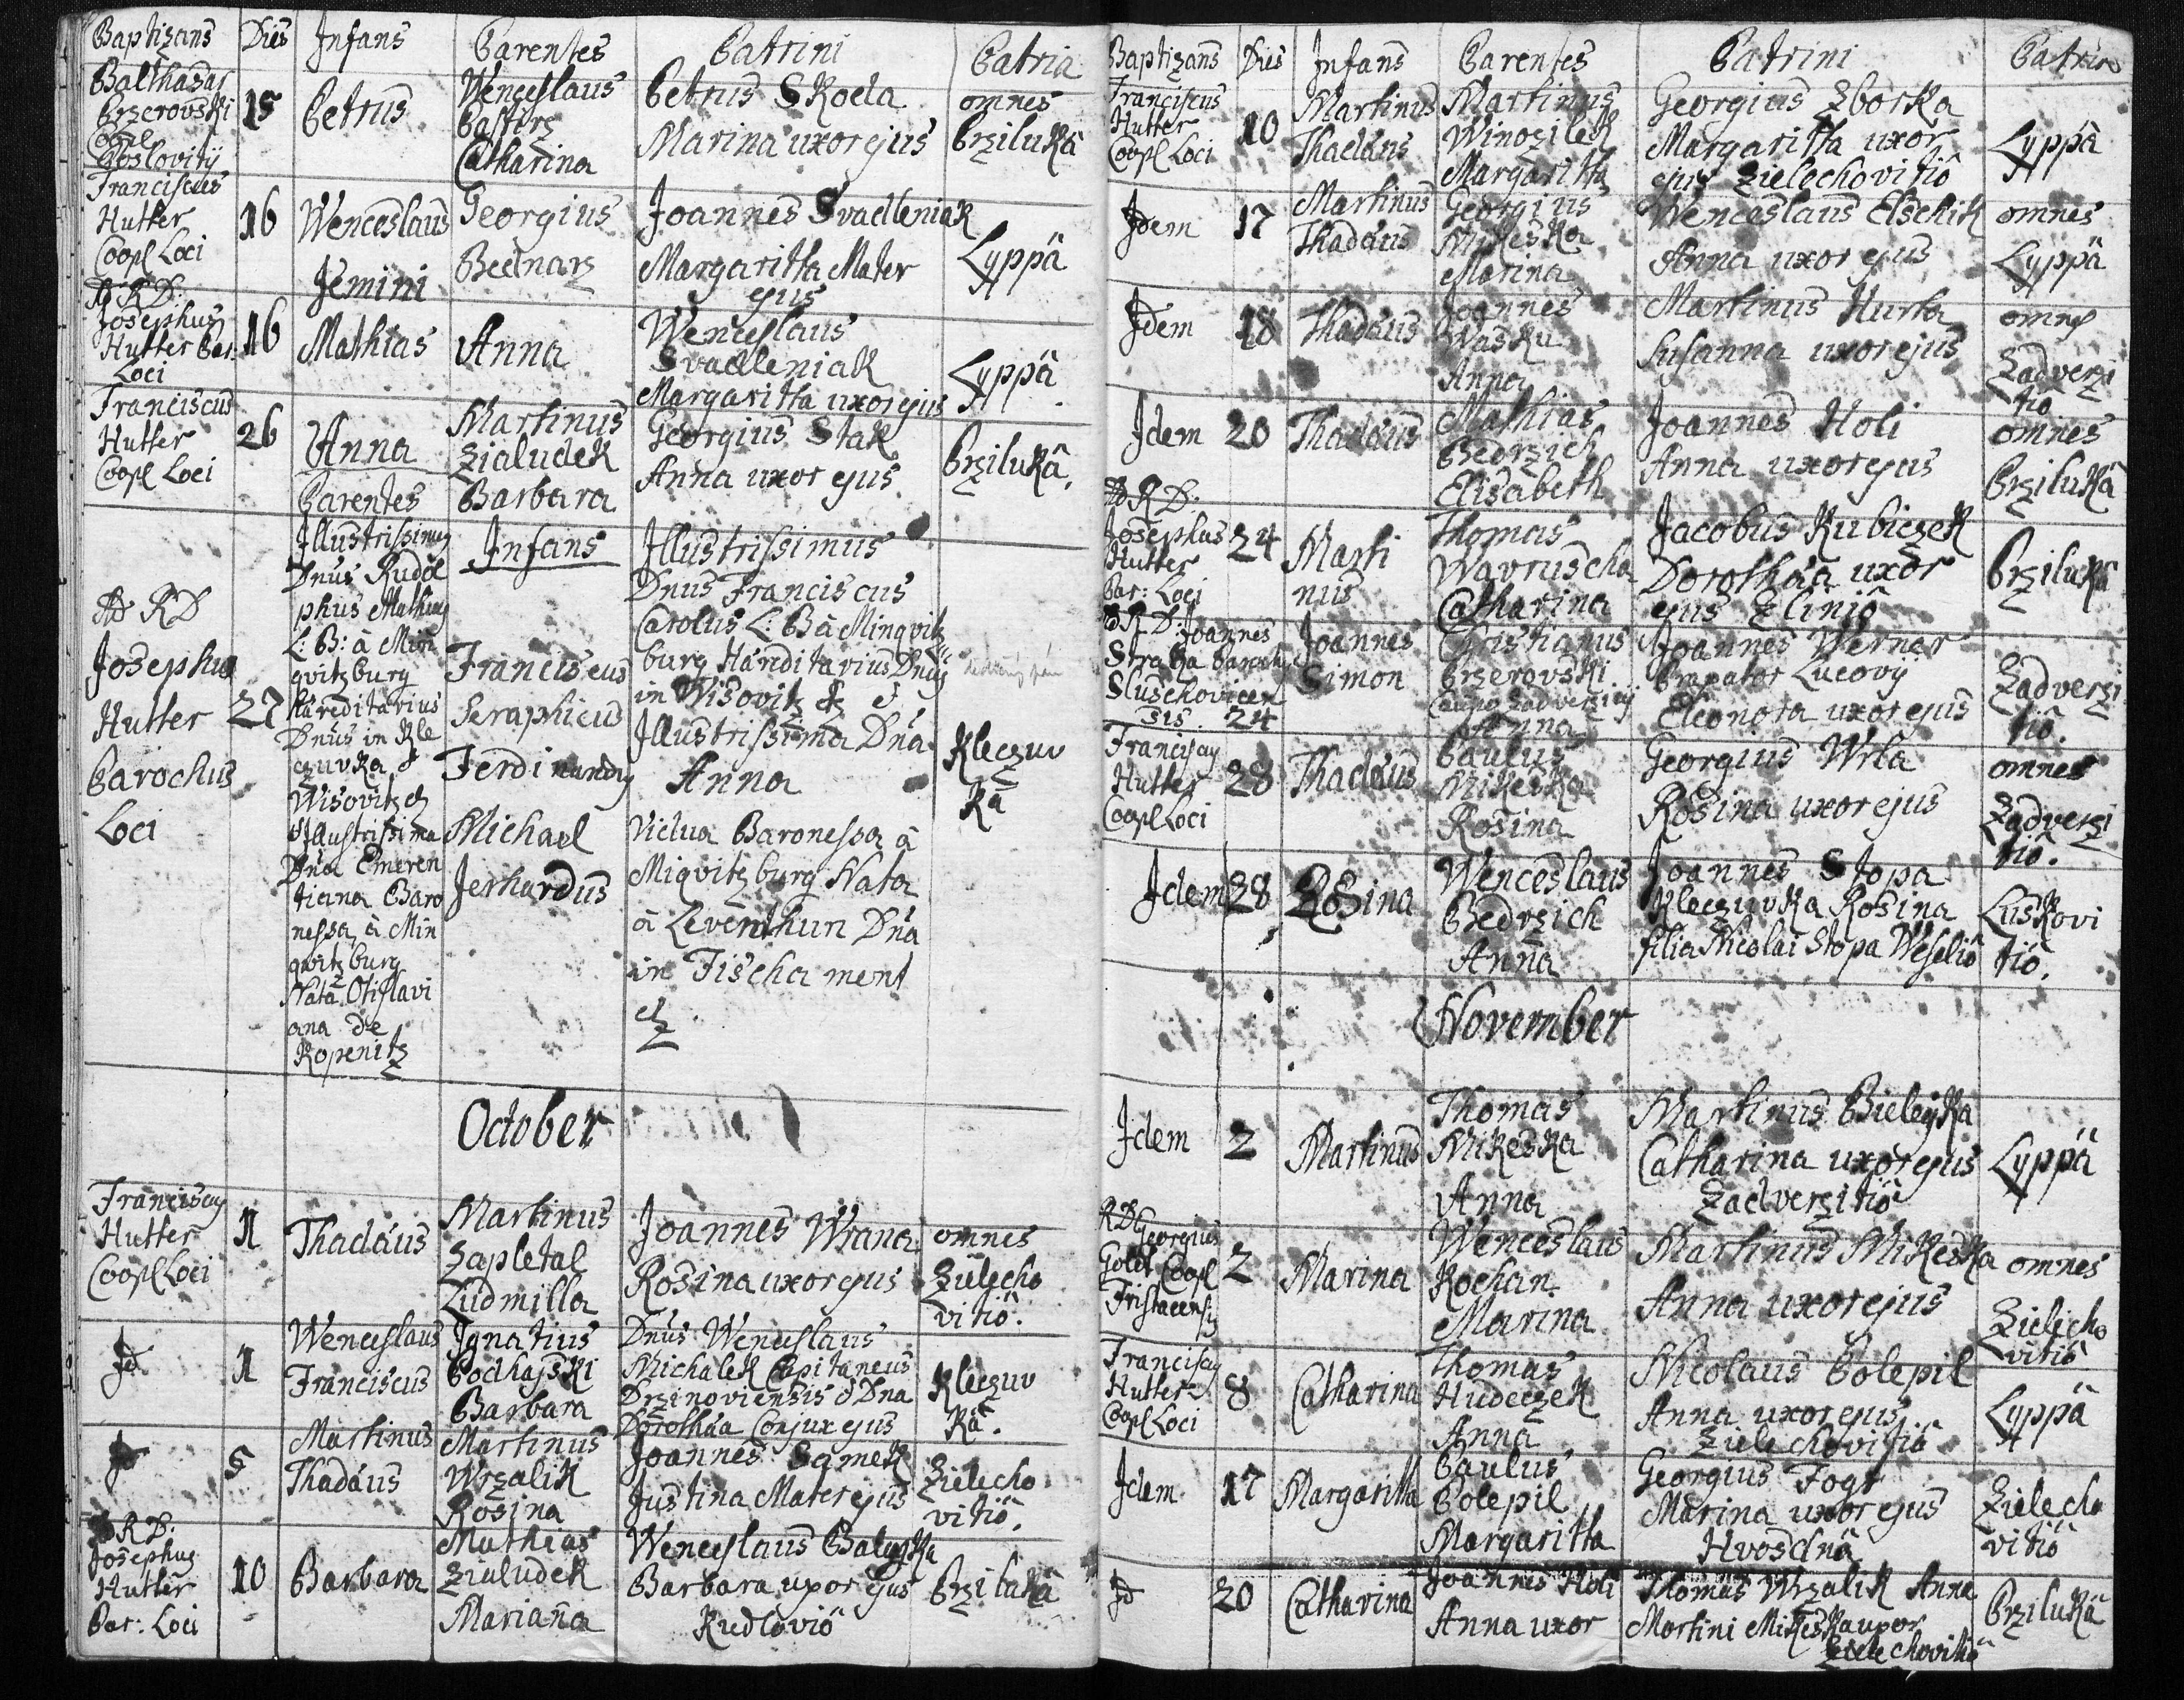 Baptizans Dies Infans Parentes Patrini Patria
Balthasar
Przerovski
Coopl
Poslovitÿ
15
Petrus
Wenceslaus
Catharina
Petrus Skoda
Marina uxor ejus
omnes
Przilukâ
Franciscus
Hutter
Coopl Loci
16
Wenceslaus
Jemini
Georgius
Bednarz
Joannes Svadleniak
Margaritha Mater
ejus
Lyppâ
Ad RD:
Josephus
Hutter Par:
Loci
16
Mathias
Anna
Wenceslaus
Svadleniak
Margaritha uxor ejus
Lyppâ
Franciscus
Hutter
Coopl Loci
26
Anna
Martinus
Zialudek
Barbara
Georgius Stak
Anna uxor ejus
Przilukâ.
Parentes
Infans
Ad RD
Josephus
Hutter
Parochus
Loci
27
Illustrissimus
Dnus Rudol
phus Mathias
L: B: â Min
qvitzburg
Hæreditarius
Dnus in Kle
czuvka &
Wisovitz &
Illustrissima
Dna Emeren
tiana Baro
nessa â Min
qvitzburg
Nata Otislavi
ana de
Kopenitz
Franciscus
Seraphicus
Ferdinandus
Michael
Jerhardus
Illustrissimus
Dnus Franciscus
Carolus L: B â Minqvitz
burg Hæreditarius Dnus
in Wisovitz &
Illustrissima Dna
Anna
Vidua Baronessa â
Miqvitzburg Nata
â Leventhurn Dna
in Fischament
Kleczuv
kâ
October
Franciscus
Hutter
Coopl Loci
1
Thadäus
Martinus
Zapletal
Ludmilla
Joannes Wrana
Rosina uxor ejus
omnes
Zielecho
vitiô.
Jd
1
Wenceslaus
Franciscus
Ignatius
Podhajski
Barbara
Dnus Wenceslaus
Michalek Capitaneus
Drzinoviensis & Dna
Dorothäa Conjux ejus
Kleczuv
kâ.
Jd
5
Martinus
Thadäus
Martinus
Wrzalik
Rosina
Joannes Samek
Justina Mater ejus
Zielecho
vitiô.
Ad RD:
Josephus
Hutter
Par: Loci
10
Barbara
Mathias
Zialudek
Mariana
Wenceslaus
Barbara uxor ejus
Kudloviô
Przilukâ
Baptizans Dies Infans Parentes Patrini Patria
Franciscus
Hutter
Coopl Loci
10
Martinus
Thadäus
Martinus
Winozilek
Margaritha
Georgius Zborka
Margaritha uxor
ejus Zielechovitiô
Lyppâ
Idem
17
Martinus
Thadäus
Georgius
Mikeska
Marina
Wenceslaus Elschik
Anna uxor ejus
omnes
Lyppâ
Idem
18
Thadäus
Joannes
Wasku
Anna
Martinus Hurta
Susanna uxor ejus
omnes
Zadverzi
tiô
Idem
20
Thadäus
Mathias
Bedrzich
Elisabeth
Joannes Holi
Anna uxor ejus
omnes
Przilukâ
Ad RD:
Josephus
Hutter
Par: Loci
24
Marti
nus
Thomas
Wavruscha
Catharina
Jacobus Kubiczek
Dorothäa uxor
ejus Zliniô
Przilukâ
Ad RD: Joannes
Straka Paroch
Sluschovicen
sis. 24
Joannes
Simon
Christianus
Przerovski
Anna
Joannes Werner
Eleonora uxor ejus
Zadverzi
tiô.
Franciscus
Hutter
Coopl Loci
28
Thadäus
Paulus
Mikeska
Rosina
Georgius Wrla
Rosina uxor ejus
omnes
Zadverzi
tiô.
Idem
28
Rosina
Wenceslaus
Bedrzich
Anna
Joannes Stopa
Kleczuvka Rosina
filia Nicolai Stopa Weseliô
Luskovi
tiô.
November
Idem
2
Martinus
Thomas
Mikeska
Anna
Martinus Bieleyka
Catharina uxor ejus
Zadverzitiô
Lyppâ
RD Georgius
Goldt Coopl
Fristacensis
2
Marina
Wenceslaus
Kochan
Marina
Martinus Mikeska
Anna uxor ejus
omnes
Zielicho
vitiô
Franciscus
Hutter
Coopl Loci
8
Catharina
Thomas
Hudeczek
Anna
Nicolaus Polepil
Anna uxor ejus
Zielechovitiô
Lyppâ
Idem
17
Margaritha
Paulus
Polepil
Margaritha
Georgius Fogt
Marina uxor ejus
Hvosdnâ
Zielecho
vitiô
Jd
20
Catharina
Joannes Holi
Anna uxor
Thomas Wrzalik Anna
Martini Mikeska uxor
Zielechovitiô
Przilukâ